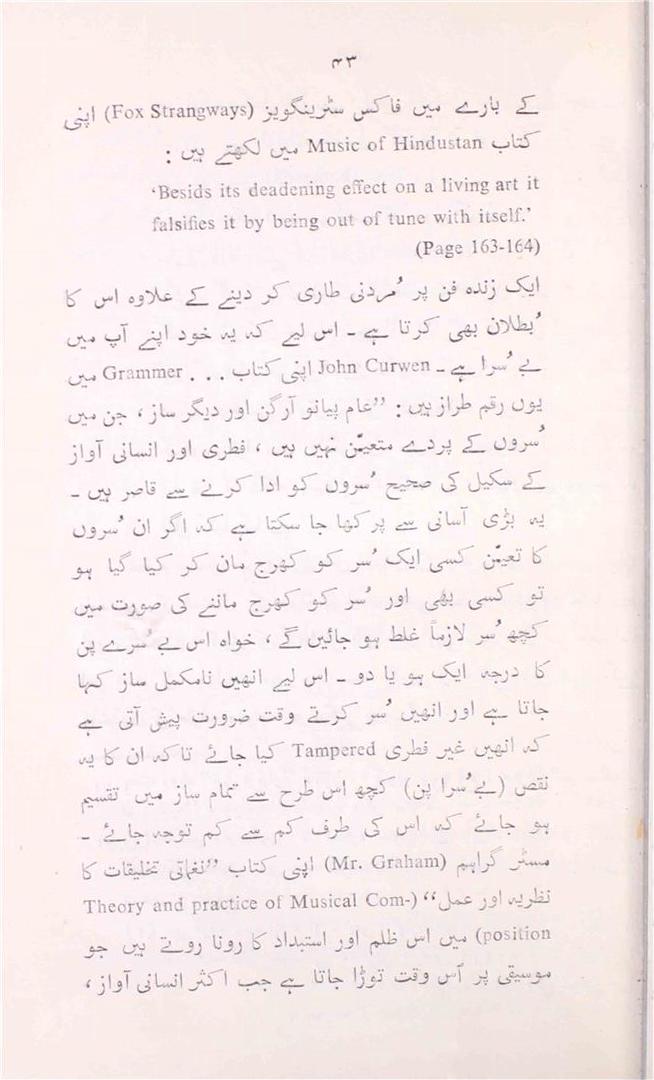 ۴۳
کے بارے میں فاکس سٹرینگویز (Fox Strangways) اپنی
کتاب Music of Hindustan میں لکھتے ہیں :
‘Besids its deadening effect on a living art it
falsifies it by being out of tune with itself.’
(Page 163-164)
ایک زندہ فن پر مُردنی طاری کر دینے کے علاوہ اس کا
بُطلان بھی کرتا ہے ۔ اس لیے کہ یہ خود اپنے آپ میں
بے سُرا ہے ۔ John Curwen اپنی کتاب . . . Grammer میں
یوں رقم طراز ہیں : ”عام پیانو آرگن اور دیگر ساز ، جن میں
سُروں کے پردے متعیّن نہیں ہیں ، فطری اور انسانی آواز
کے سکیل کی صحیح سُروں کو ادا کرنے سے قاصر ہیں ۔
یہ بڑی آسانی سے پرکھا جا سکتا ہے کہ اگر ان سُروں
کا تعیّن کسی ایک سُر کو کھرج مان کر کیا گیا ہو
تو کسی بھی اور سُر کو کھرج ماننے کی صورت میں
کچھ سُر لازماً غلط ہو جائیں گے ، خواہ اس بے سُرے پن
کا درجہ ایک ہو یا دو ۔ اس لیے انھیں نامکمل ساز کہا
جاتا ہے اور انھیں سُر کرتے وقت ضرورت پیش آتی ہے
کہ انھیں غیر فطری Tampered کیا جائے تاکہ ان کا یہ
نقص (بے سُرا پن) کچھ اس طرح سے تمام ساز میں تقسیم
ہو جائے کہ اس کی طرف کم سے کم توجہ جائے ۔
مسٹر گراہم (Mr. Graham) اپنی کتاب ”نغماتی تخلیقات کا
نظریہ اور عمل“ (Theory and practice of Musical Com-
position) میں اس ظلم اور استبداد کا رونا روتے ہیں جو
موسیقی پر اُس وقت توڑا جاتا ہے جب اکثر انسانی آواز ،